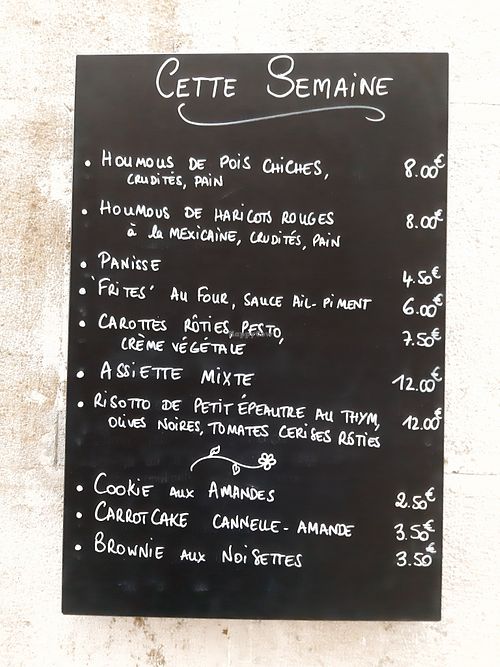 CETTE SEMAINE
• HOUMOUS DE POIS CHICHES, 8.00€
CRUDITÉS, PAIN
• HOUMOUS DE HARICOTS ROUGES 8.00€
à la MEXICAINE, CRUDITÉS, PAIN
• PANISSE 4.50€
• 'FRITES' AU FOUR, SAUCE AIL-PIMENT 6.00€
• CAROTTES RÔTIES, PESTO, 7.50€
CRÈME VÉGÉTALE
• ASSIETTE MIXTE 12.00€
• RISOTTO DE PETIT ÉPEAUTRE AU THYM, 12.00€
OLIVES NOIRES, TOMATES CERISES RÔTIES
• COOKIE AUX AMANDES 2.50€
• CARROTCAKE CANNELLE-AMANDE 3.50€
• BROWNIE AUX NOISETTES 3.50€